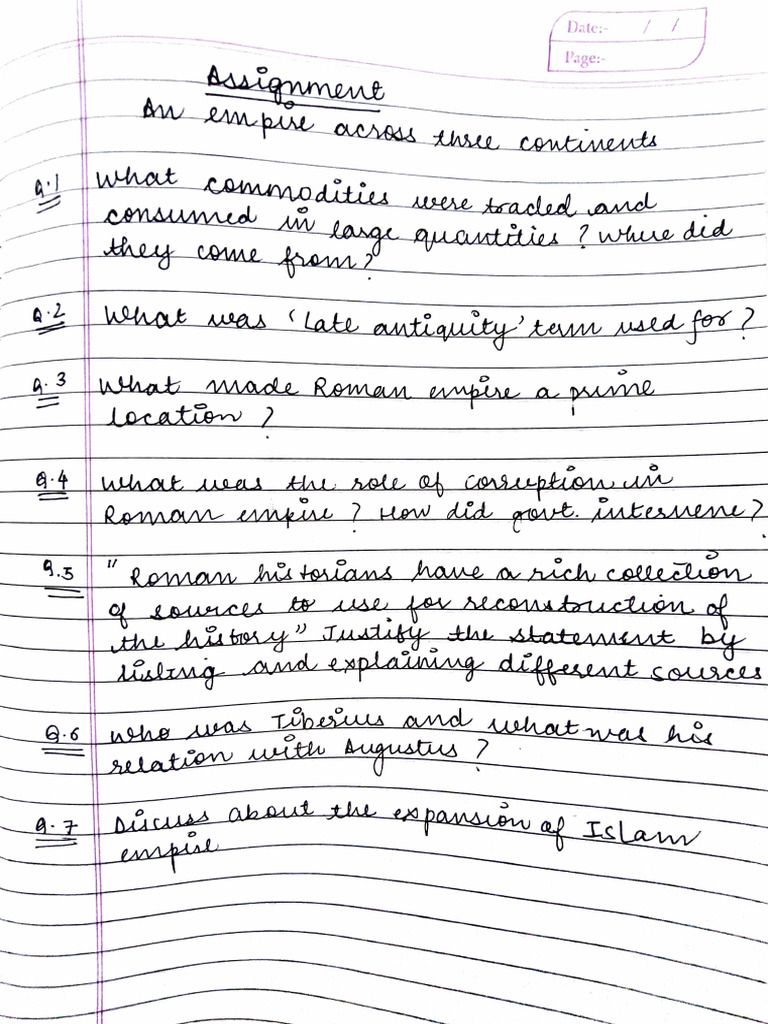 Date:- / /
Page:-
Assignment
An empire across three continents
Q.1 What commodities were traded and
consumed in large quantities? Where did
they come from?
Q.2 What was 'Late antiquity' term used for?
Q.3 What made Roman empire a prime
location?
Q.4 What was the role of corruption in
Roman empire? How did govt. intervene?
Q.5 "Roman historians have a rich collection
of sources to use for reconstruction of
the history" Justify the statement by
listing and explaining different sources
Q.6 Who was Tiberius and what was his
relation with Augustus?
Q.7 Discuss about the expansion of Islam
empire